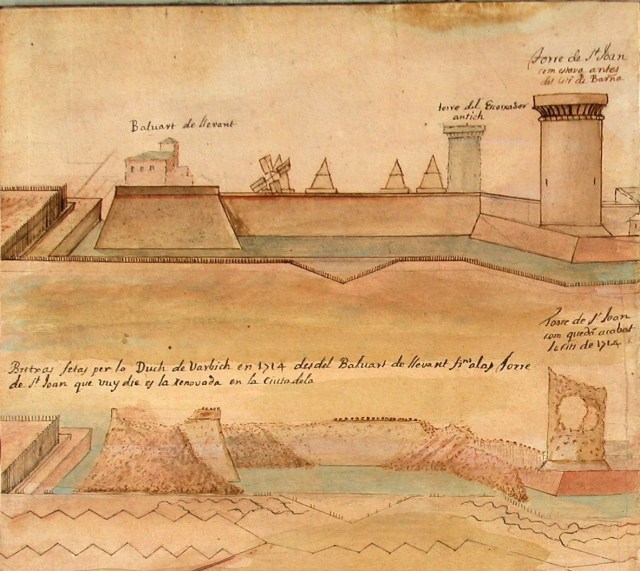 Torre de St Joan
com estava antes
del siti de Barña
torre del Escorxador
antich
Baluart de llevant
Torre de St Joan
com quedá acabat
lo siti de 1714
Bretxas fetas per lo Duch de Varbich en 1714 des del Baluart de llevant fins a la Torre
de St Joan que vuy die es la renovada en la Ciutadela